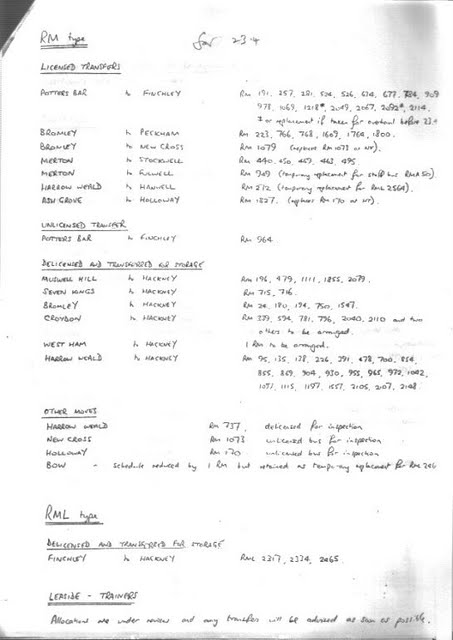 RM type
for 23.4
LICENSED TRANSFERS
POTTERS BAR to FINCHLEY RM 191, 257, 281, 524, 526, 634, 677, 784, 909
978, 1069, 1218*, 2049, 2067, 2092*, 2114.
* or replacement if taken for overhaul before 23.4
BROMLEY to PECKHAM RM 223, 766, 768, 1609, 1764, 1800.
BROMLEY to NEW CROSS RM 1079 (replaces RM 1073 or NT).
MERTON to STOCKWELL RM 440, 450, 467, 463, 495
MERTON to FULWELL RM 949 (temporary replacement for staff bus RMA 50).
HARROW WEALD to HANWELL RM 272 (temporary replacement for RML 2564).
ASH GROVE to HOLLOWAY RM 1827. (replaces RM 170 or NT).
UNLICENSED TRANSFER
POTTERS BAR to FINCHLEY RM 964
DELICENSED AND TRANSFERRED FOR STORAGE
MUSWELL HILL to HACKNEY RM 196, 479, 1111, 1855, 2079.
SEVEN KINGS to HACKNEY RM 715, 716.
BROMLEY to HACKNEY RM 24, 180, 194, 750, 1547.
CROYDON to HACKNEY RM 339, 594, 781, 796, 2040, 2110 and two
others to be arranged.
WEST HAM to HACKNEY 1 RM to be arranged.
HARROW WEALD to HACKNEY RM 95, 135, 138, 226, 291, 478, 700, 854,
855, 869, 904, 930, 955, 965, 972, 1002,
1071, 1115, 1197, 1557, 2105, 2107, 2148.
OTHER MOVES
HARROW WEALD RM 737, delicensed for inspection
NEW CROSS RM 1073 unlicensed bus for inspection
HOLLOWAY RM 170 unlicensed bus for inspection
BOW - schedule reduced by 1 RM but retained as temporary replacement for RM 246
RML type
DELICENSED AND TRANSFERRED FOR STORAGE
FINCHLEY to HACKNEY RML 2317, 2334, 2465.
LEASIDE - TRAINERS
Allocations are under review and any transfers will be advised as soon as possible.